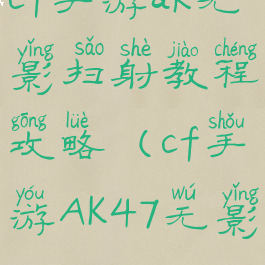 cf手游ak无
yǐng sǎo shè jiào chéng
影扫射教程
gōng lüè shǒu
攻略（cf手
yóu wú yǐng
游AK47无影